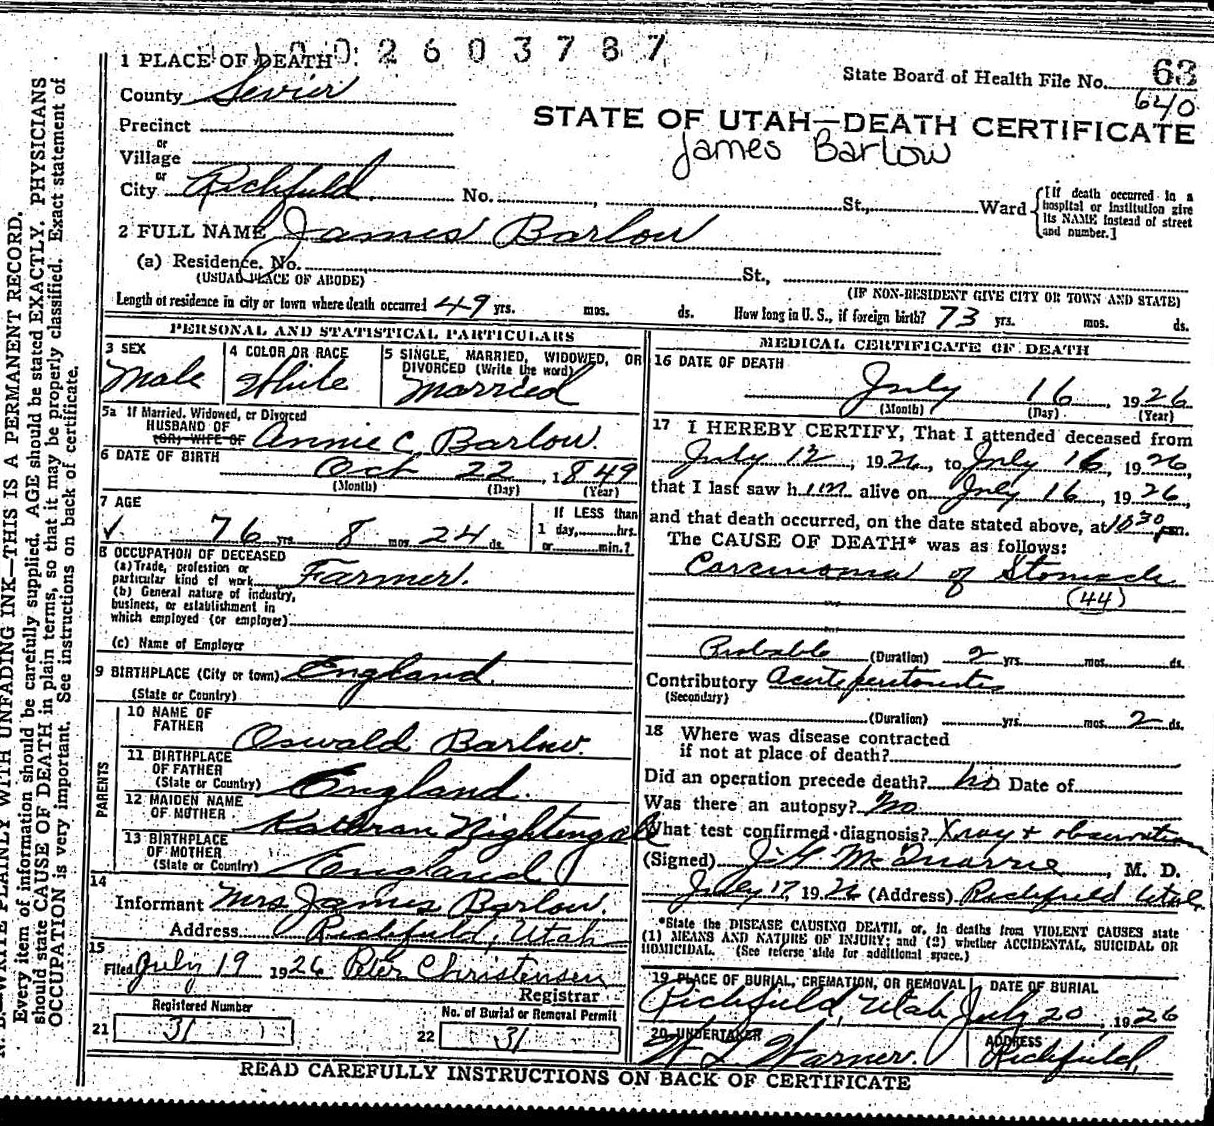 1 PLACE OF DEATH
002603787
State Board of Health File No. 63
640
County Sevier
STATE OF UTAH—DEATH CERTIFICATE
James Barlow
Precinct
or
Village
or
City Richfield. No. , St., Ward
[If death occurred in a hospital or institution give its NAME instead of street and number.]
2 FULL NAME James Barlow
(a) Residence. No. St.,
(USUAL PLACE OF ABODE) (IF NON-RESIDENT GIVE CITY OR TOWN AND STATE)
Length of residence in city or town where death occurred 49 yrs. mos. ds. How long in U. S., if foreign birth? 73 yrs. mos. ds.
PERSONAL AND STATISTICAL PARTICULARS
3 SEX
Male
4 COLOR OR RACE
White
5 SINGLE, MARRIED, WIDOWED, OR
DIVORCED (Write the word)
Married
5a If Married, Widowed, or Divorced
HUSBAND OF
(OR) WIFE OF Annie C. Barlow.
6 DATE OF BIRTH Oct 22, 1849
(Month) (Day) (Year)
7 AGE
76 yrs 8 mos. 24 ds.
If LESS than
1 day, hrs.
or min.?
8 OCCUPATION OF DECEASED
(a) Trade, profession or
particular kind of work Farmer.
(b) General nature of industry,
business, or establishment in
which employed (or employer)
(c) Name of Employer
9 BIRTHPLACE (City or town) England.
(State or Country)
PARENTS
10 NAME OF
FATHER Oswald Barlow.
11 BIRTHPLACE
OF FATHER
(State or Country) England.
12 MAIDEN NAME
OF MOTHER Kathran Nightengale
13 BIRTHPLACE
OF MOTHER
(State or Country) England
14
Informant Mrs James Barlow.
Address Richfield, Utah
15
Filed July 19 1926 Peter Christensen
Registrar
Registered Number
21 31
No. of Burial or Removal Permit
22 31
MEDICAL CERTIFICATE OF DEATH
16 DATE OF DEATH
July 16, 1926
(Month) (Day) (Year)
17 I HEREBY CERTIFY, That I attended deceased from
July 12, 1926, to July 16, 1926,
that I last saw him alive on July 16, 1926,
and that death occurred, on the date stated above, at 1030 pm.
The CAUSE OF DEATH* was as follows:
Carcinoma of Stomach
(44)
Probable (Duration) 2 yrs. mos. ds.
Contributory Acute peritonitis
(Secondary)
(Duration) yrs. mos. 2 ds.
18 Where was disease contracted
if not at place of death?
Did an operation precede death? No Date of
Was there an autopsy? No
What test confirmed diagnosis? Xray + observation
(Signed) McQuarrie, M. D.
July 17, 1926 (Address) Richfield Utah
*State the DISEASE CAUSING DEATH, or, in deaths from VIOLENT CAUSES state
(1) MEANS AND NATURE OF INJURY; and (2) whether ACCIDENTAL, SUICIDAL OR
HOMICIDAL. (See reverse side for additional space.)
19 PLACE OF BURIAL, CREMATION, OR REMOVAL
Richfield, Utah
DATE OF BURIAL
July 20, 1926
20 UNDERTAKER
Warner.
ADDRESS
Richfield,
READ CAREFULLY INSTRUCTIONS ON BACK OF CERTIFICATE
WRITE PLAINLY WITH UNFADING INK—THIS IS A PERMANENT RECORD.
Every item of information should be carefully supplied. AGE should be stated EXACTLY. PHYSICIANS
should state CAUSE OF DEATH in plain terms, so that it may be properly classified. Exact statement of
OCCUPATION is very important. See instructions on back of certificate.